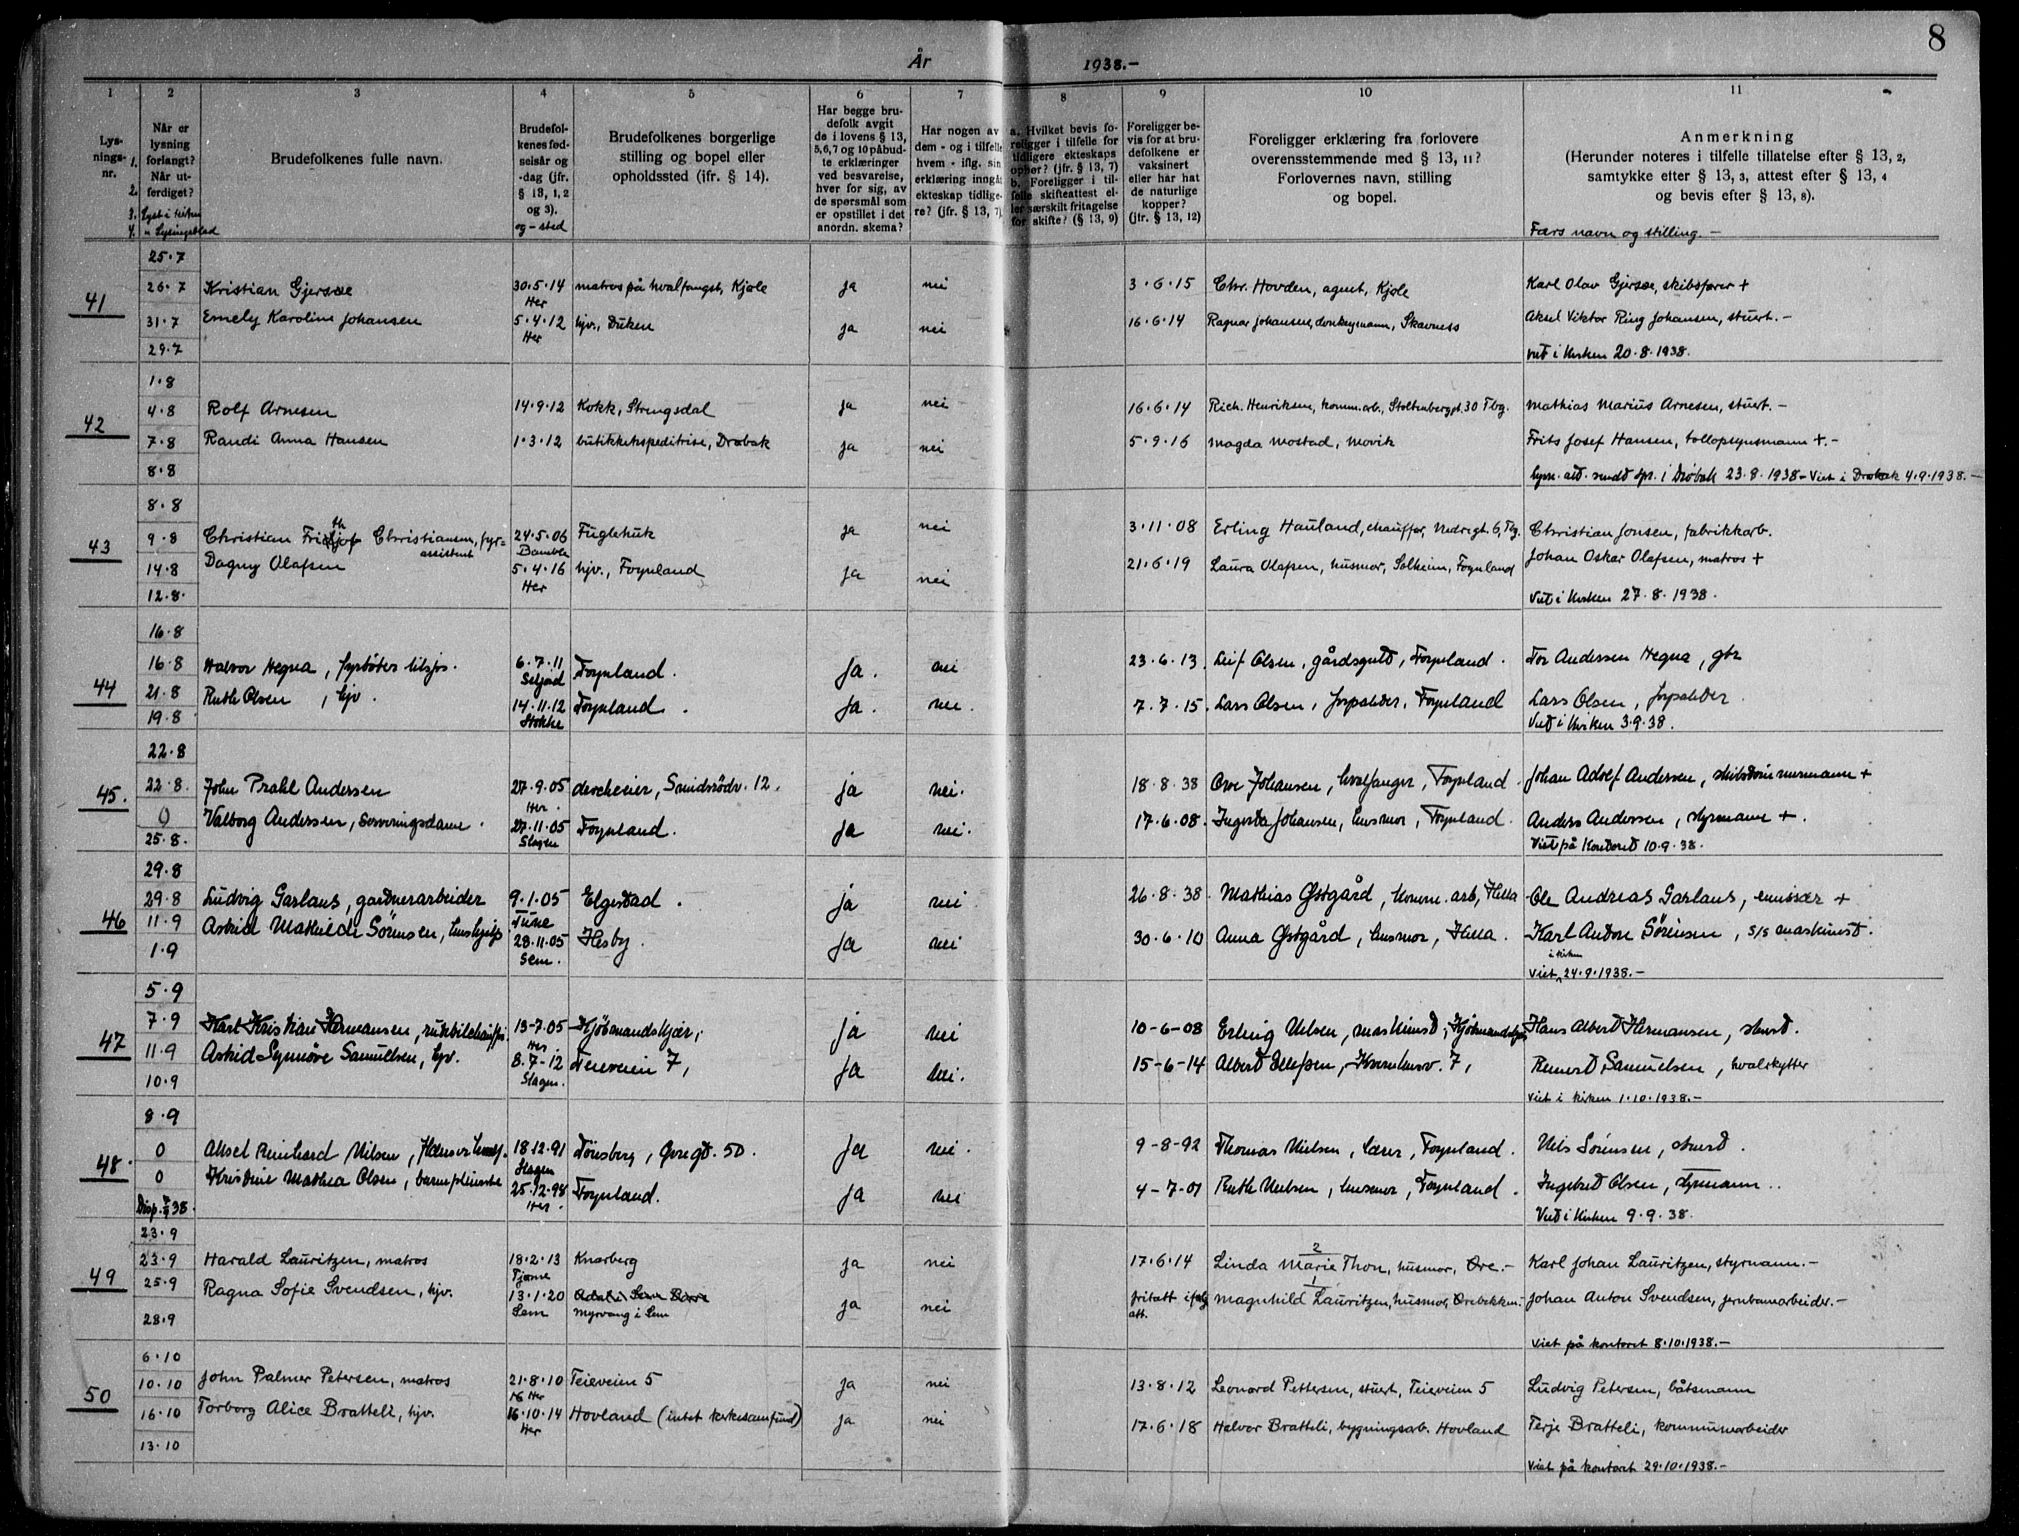 8
År 1938.-
1 2 3 4 5 6 7 8 9 10 11
Lysningsnr.
1.
2.
3. Lyst i kirken
4. " Lysingsblad
Når er lysning forlangt? Når utferdiget?
Brudefolkenes fulle navn.
Brudefolkenes fødselsår og -dag (jfr. § 13, 1, 2 og 3).
og - sted
Brudefolkenes borgerlige stilling og bopel eller opholdssted (jfr. § 14).
Har begge brudefolk avgit de i lovens § 13, 5, 6, 7 og 10 påbudte erklæringer ved besvarelse, hver for sig, av de spørsmål som er opstillet i det anordn. skema?
Har nogen av dem - og i tilfelle hvem - iflg. sin erklæring inngåt ekteskap tidligere? (jfr. § 13, 7)
a. Hvilket bevis foreligger i tilfelle for tidligere ekteskaps ophør? (jfr. § 13, 7)
b. Foreligger i tilfelle skifteattest eller særskilt fritagelse for skifte? (§ 13, 9)
Foreligger bevis for at brudefolkene er vaksinert eller har hat de naturlige kopper? (jfr. § 13, 12)
Foreligger erklæring fra forlovere overensstemmende med § 13, 11? Forlovernes navn, stilling og bopel.
Anmerkning
(Herunder noteres i tilfelle tillatelse efter § 13, 2, samtykke efter § 13, 3, attest efter § 13, 4 og bevis efter § 13, 8).
Fars navn og stilling. -
25.7
41 26.7 Kristian Gjersøe 30.5.14 Her matros på hvalfangst, Kjøle ja nei 3.6.15 Chr. Hovden, agent, Kjøle Karl Olav Gjersøe, skibsfører +
31.7 Emely Karoline Johansen 5.4.12 Her hjv., Duken ja nei 16.6.14 Ragnar Johansen, donkeymann, Skavness Aksel Viktor Ring Johansen, stuert. -
29.7 viet i kirken 20.8.1938.
1.8
42 4.8 Rolf Arnesen 14.9.12 Kokk, Strengsdal ja nei 16.6.14 Rich. Henriksen, komm.arb., Stoltenberggt. 30 Tbg. Mathias Marius Arnesen, stuert. -
7.8 Randi Anna Hansen 1.3.12 butikkekspeditrise, Drøbak ja nei 5.9.16 Magda Mostad, Movik Frits Josef Hansen, tollopsynsmann +. -
8.8 lysn. att. sendt spr. i Drøbak 23.8.1938 - Viet i Drøbak 4.9.1938. -
8.8
43 9.8 Christian Fridtjof Christiansen, fyrassistent 24.5.06 Bamble Fuglehuk ja nei 3.11.08 Erling Hauland, chauffør, Nedregt. 6, Tbg. Christian Jonsen, fabrikkarb.
14.8 Dagny Olafsen 5.4.16 Her hjv., Foynland ja nei 21.6.19 Laura Olafsen, husmor, Solheim, Foynland Johan Oskar Olafsen, matros +
12.8. Viet i kirken 27.8.1938.
16.8
44 16.8 Halvor Hegna, fyrbøter tilsjøs. 6.7.11 Seljord Foynland. Ja. nei 23.6.13. Leif Olsen, gårdsgutt, Foynland. Tor Andersen Hegna, gbr
21.8 Ruth Olsen, hjv. 14.11.12 Stokke Foynland. Ja. nei. 7.7.15. Lars Olsen, forpakter, Foynland Lars Olsen, forpakter.
19.8 Viet i kirken 3.9.38.
22.8
45. 22.8. John Prahl Andersen 27.9.05 Her. dørskeier, Smidsrødv. 12. ja nei. 18.8.38 Ove Johansen, hvalfanger, Foynland. Johan Adolf Andersen, skibstømmermann +
0 Valborg Andersen, serveringsdame. 27.11.05 Slagen Foynland. ja nei. 17.6.08. Ingerda Johansen, husmor, Foynland. Anders Andersen, styrmann +.
25.8. Viet på kontoret 10.9.38.
29.8
46 29.8 Ludvig Garlaus, gartnerarbeider 9.1.05 Tune Elgestad. ja nei. 26.8.38. Mathias Østgård, komm. arb, Hella Ole Andreas Garlaus, emissær +
11.9 Astrid Mathilde Sörensen, hushjelp 28.11.05 Sem. Hesby. ja nei 30.6.10 Anna Østgård, husmor, Hella. Karl Anton Sörensen, s/s maskinist.
1.9 Viet i kirken 24.9.1938. -
5.9
47 7.9 Karl Kristian Hermansen, rutebilchauffør. 13-7.05 Her. Kjöbmandskjær, ja nei 10-6-08 Erling Nilsen, maskinist, Kjöbmandskjær, Hans Albert Hermansen, stuert.
11.9 Astrid Synnöve Samuelsen, hjv. 8.7-12 Slagen. Teieveien 7, ja nei. 15-6-14 Albert Ellefsen, 7, Reinert Samuelsen, hvalskytter
10.9 viet i kirken 1.10.1938. -
8.9
48. 0 Aksel Reinhard Nilsen, 18.12.91 Slagen Tönsberg, Øvregt. 50. Ja nei. 9-8-92 Thomas Nielsen, lærer, Foynland. Nils Sörensen, stuert.
0 Kristine Mathea Olsen, barnepleierske 25.12.98 Her. Foynland. ja nei 4-7-01 Ruth Nielsen, husmor, Foynland. Ingebret Olsen, styrmann..
Disp. 38. Viet i kirken 9.9.38.
23.9
49 23.9 Harald Lauritzen, matros 18.2.13 Tjøme Knarberg ja nei 17.6.14 Linda Marie Thon, husmor, Øre. - 2 Karl Johan Lauritzen, styrmann. -
25.9 Ragna Sofie Svendsen, hjv. 13.1.20 Sem Myrvang i Sem ja nei fritatt ifølg att. 1 Magnhild Lauritzen, husmor, Ørebekken. - Johan Anton Svendsen, jernbanearbeider. -
28.9 viet på kontoret 8.10.1938. -
6.10
50 10.10 John Palmer Petersen, matros 21.8.10 Her Teieveien 5 ja nei 13.8.12 Leonard Pettersen, stuert, Teieveien 5 Ludvig Petersen, båtsmann
16.10 Torborg Alice Bratteli, hjv. 16.10.14 Her Hovland (intet kirkesamfund) ja nei 17.6.18 Halvor Bratteli, bygningsarb. Hovland Terje Bratteli, kommunearbeider
13.10 viet på kontoret 29.10.1938. -